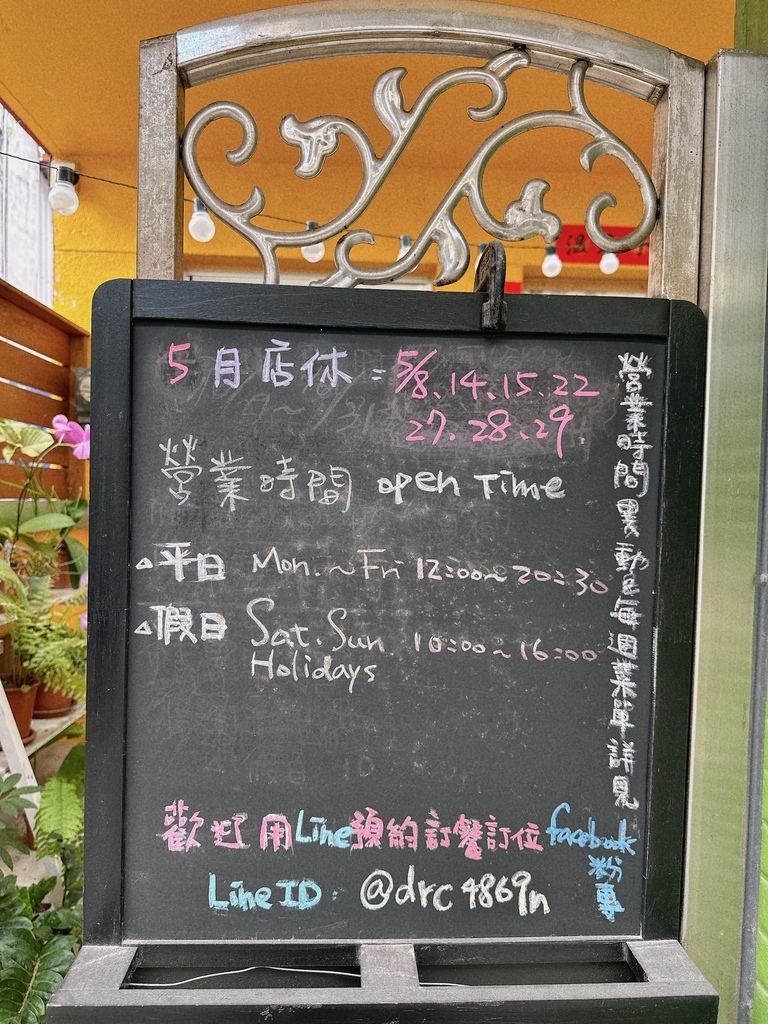 5月店休:5/8、14、15、22
27、28、29.
營業時間 open Time
△平日 Mon.~Fri 12:00~20:30
△假日 Sat.Sun 10:00~16:00
Holidays
營業時間異動&每週菜單詳見
facebook
粉專
歡迎用Line預約訂餐訂位
Line ID: @drc4869n